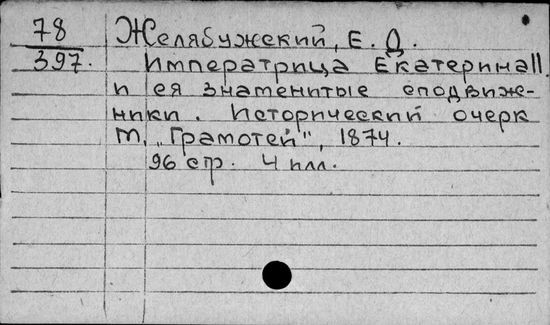 78 Желябужский, Е. Д.
397. Императрица Екатерина II
и ея знаменитые сподвиж-
ники. Исторический очерк
М. „Грамотей", 1874.
96 стр. 4 илл.